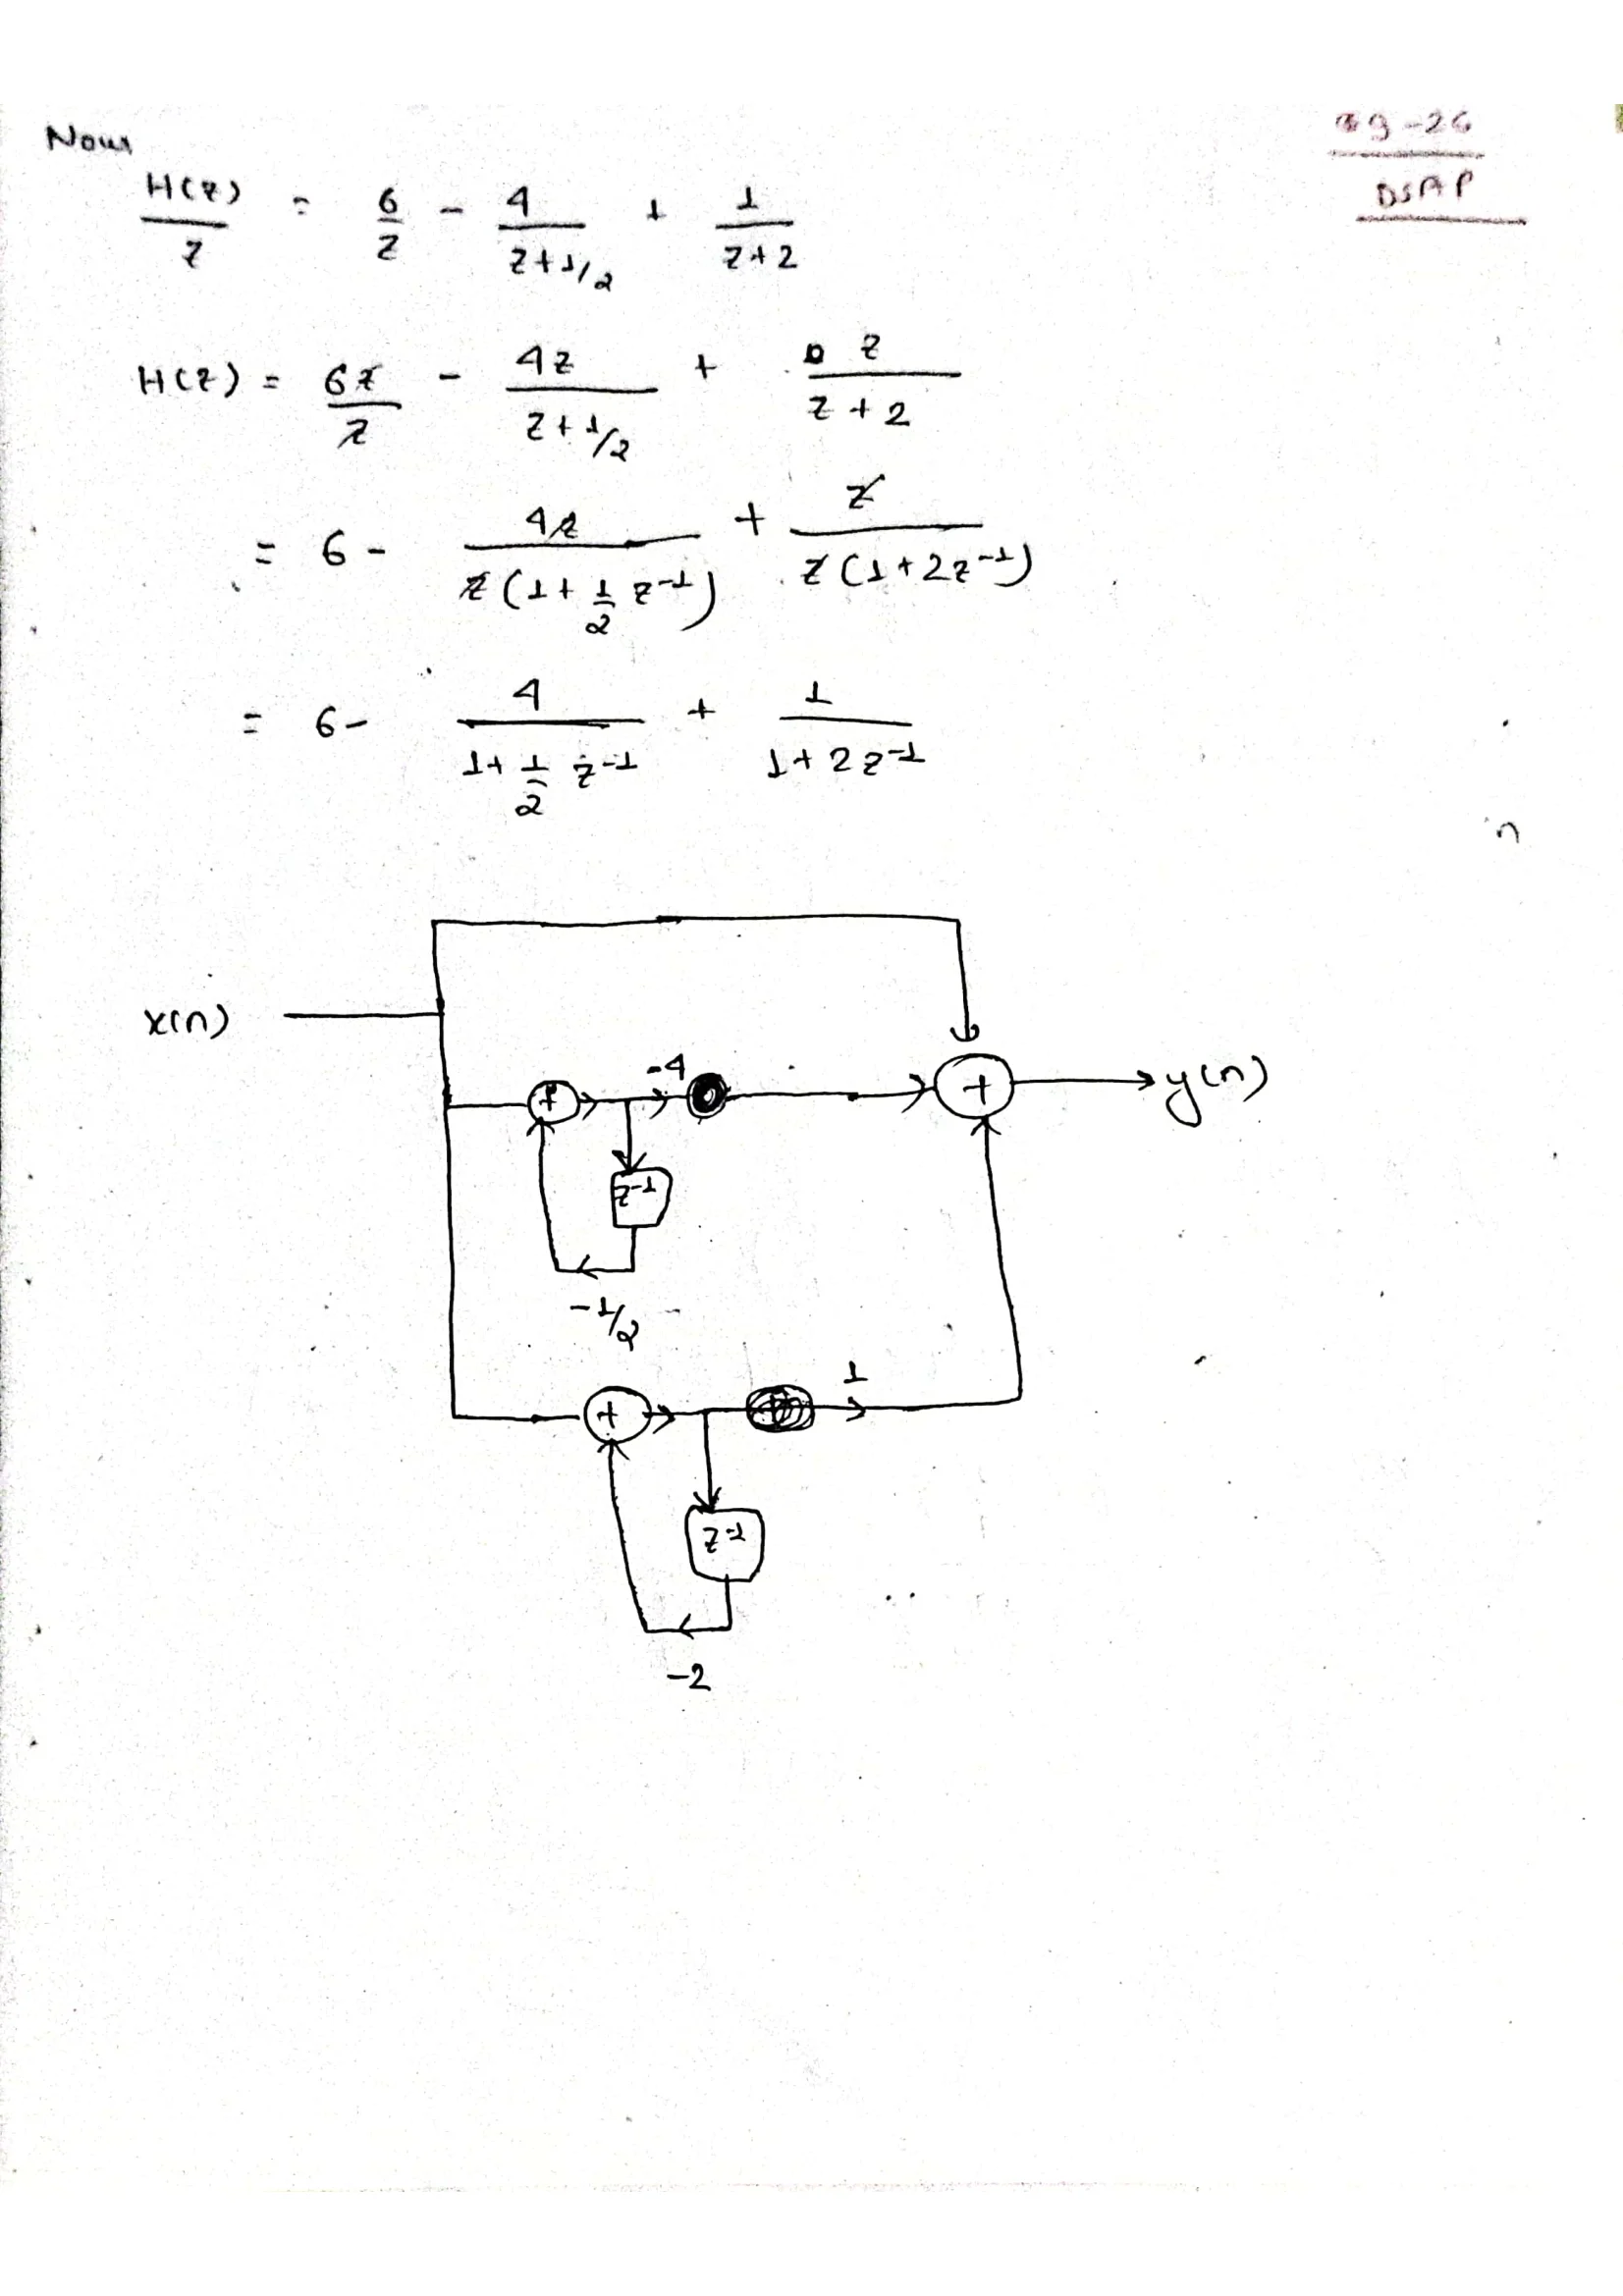 Now
pg-26
DSAP
H(z)/z = 6/z - 4/(z+1/2) + 1/(z+2)
H(z) = 6z/z - 4z/(z+1/2) + z/(z+2)
= 6 - 4z/(z(1+1/2 z⁻¹)) + z/(z(1+2z⁻¹))
= 6 - 4/(1+1/2 z⁻¹) + 1/(1+2z⁻¹)
x(n)
-4
+
+
y(n)
z⁻¹
-1/2
1
+
z⁻¹
-2